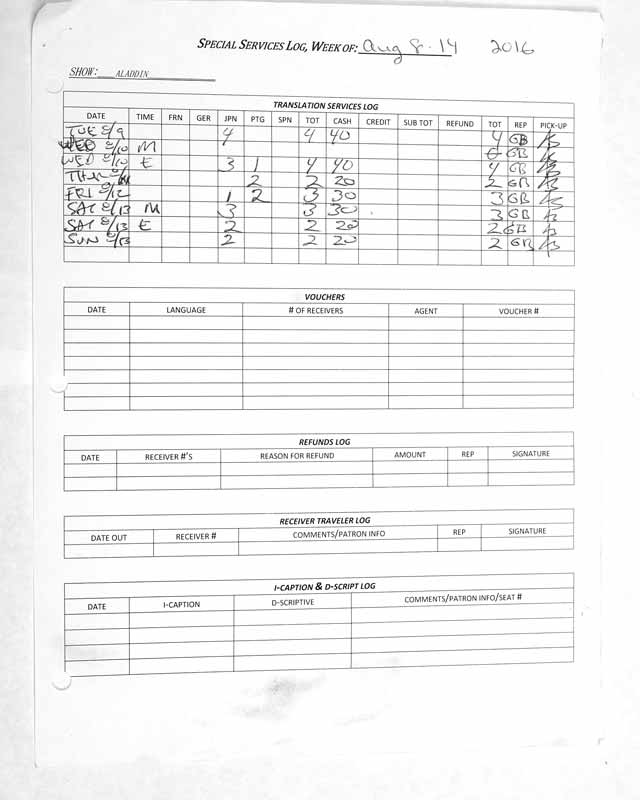 SPECIAL SERVICES LOG, WEEK OF: Aug 8-14 2016
SHOW: ALADDIN
TRANSLATION SERVICES LOG
DATE TIME FRN GER JPN PTG SPN TOT CASH CREDIT SUB TOT REFUND TOT REP PICK-UP
TUE 8/9 4 4 40 4 GB
WED 8/10 M GB
WED 8/10 E 3 1 4 40 4 GB
THU 2 2 20 2 GB
FRI 8/12 1 2 3 30 3 GB
SAT 8/13 M 3 3 30 3 GB
SAT 8/13 E 2 2 20 2 GB
SUN 8/13 2 2 20 2 GB
VOUCHERS
DATE LANGUAGE # OF RECEIVERS AGENT VOUCHER #
REFUNDS LOG
DATE RECEIVER #'S REASON FOR REFUND AMOUNT REP SIGNATURE
RECEIVER TRAVELER LOG
DATE OUT RECEIVER # COMMENTS/PATRON INFO REP SIGNATURE
I-CAPTION & D-SCRIPT LOG
DATE I-CAPTION D-SCRIPTIVE COMMENTS/PATRON INFO/SEAT #